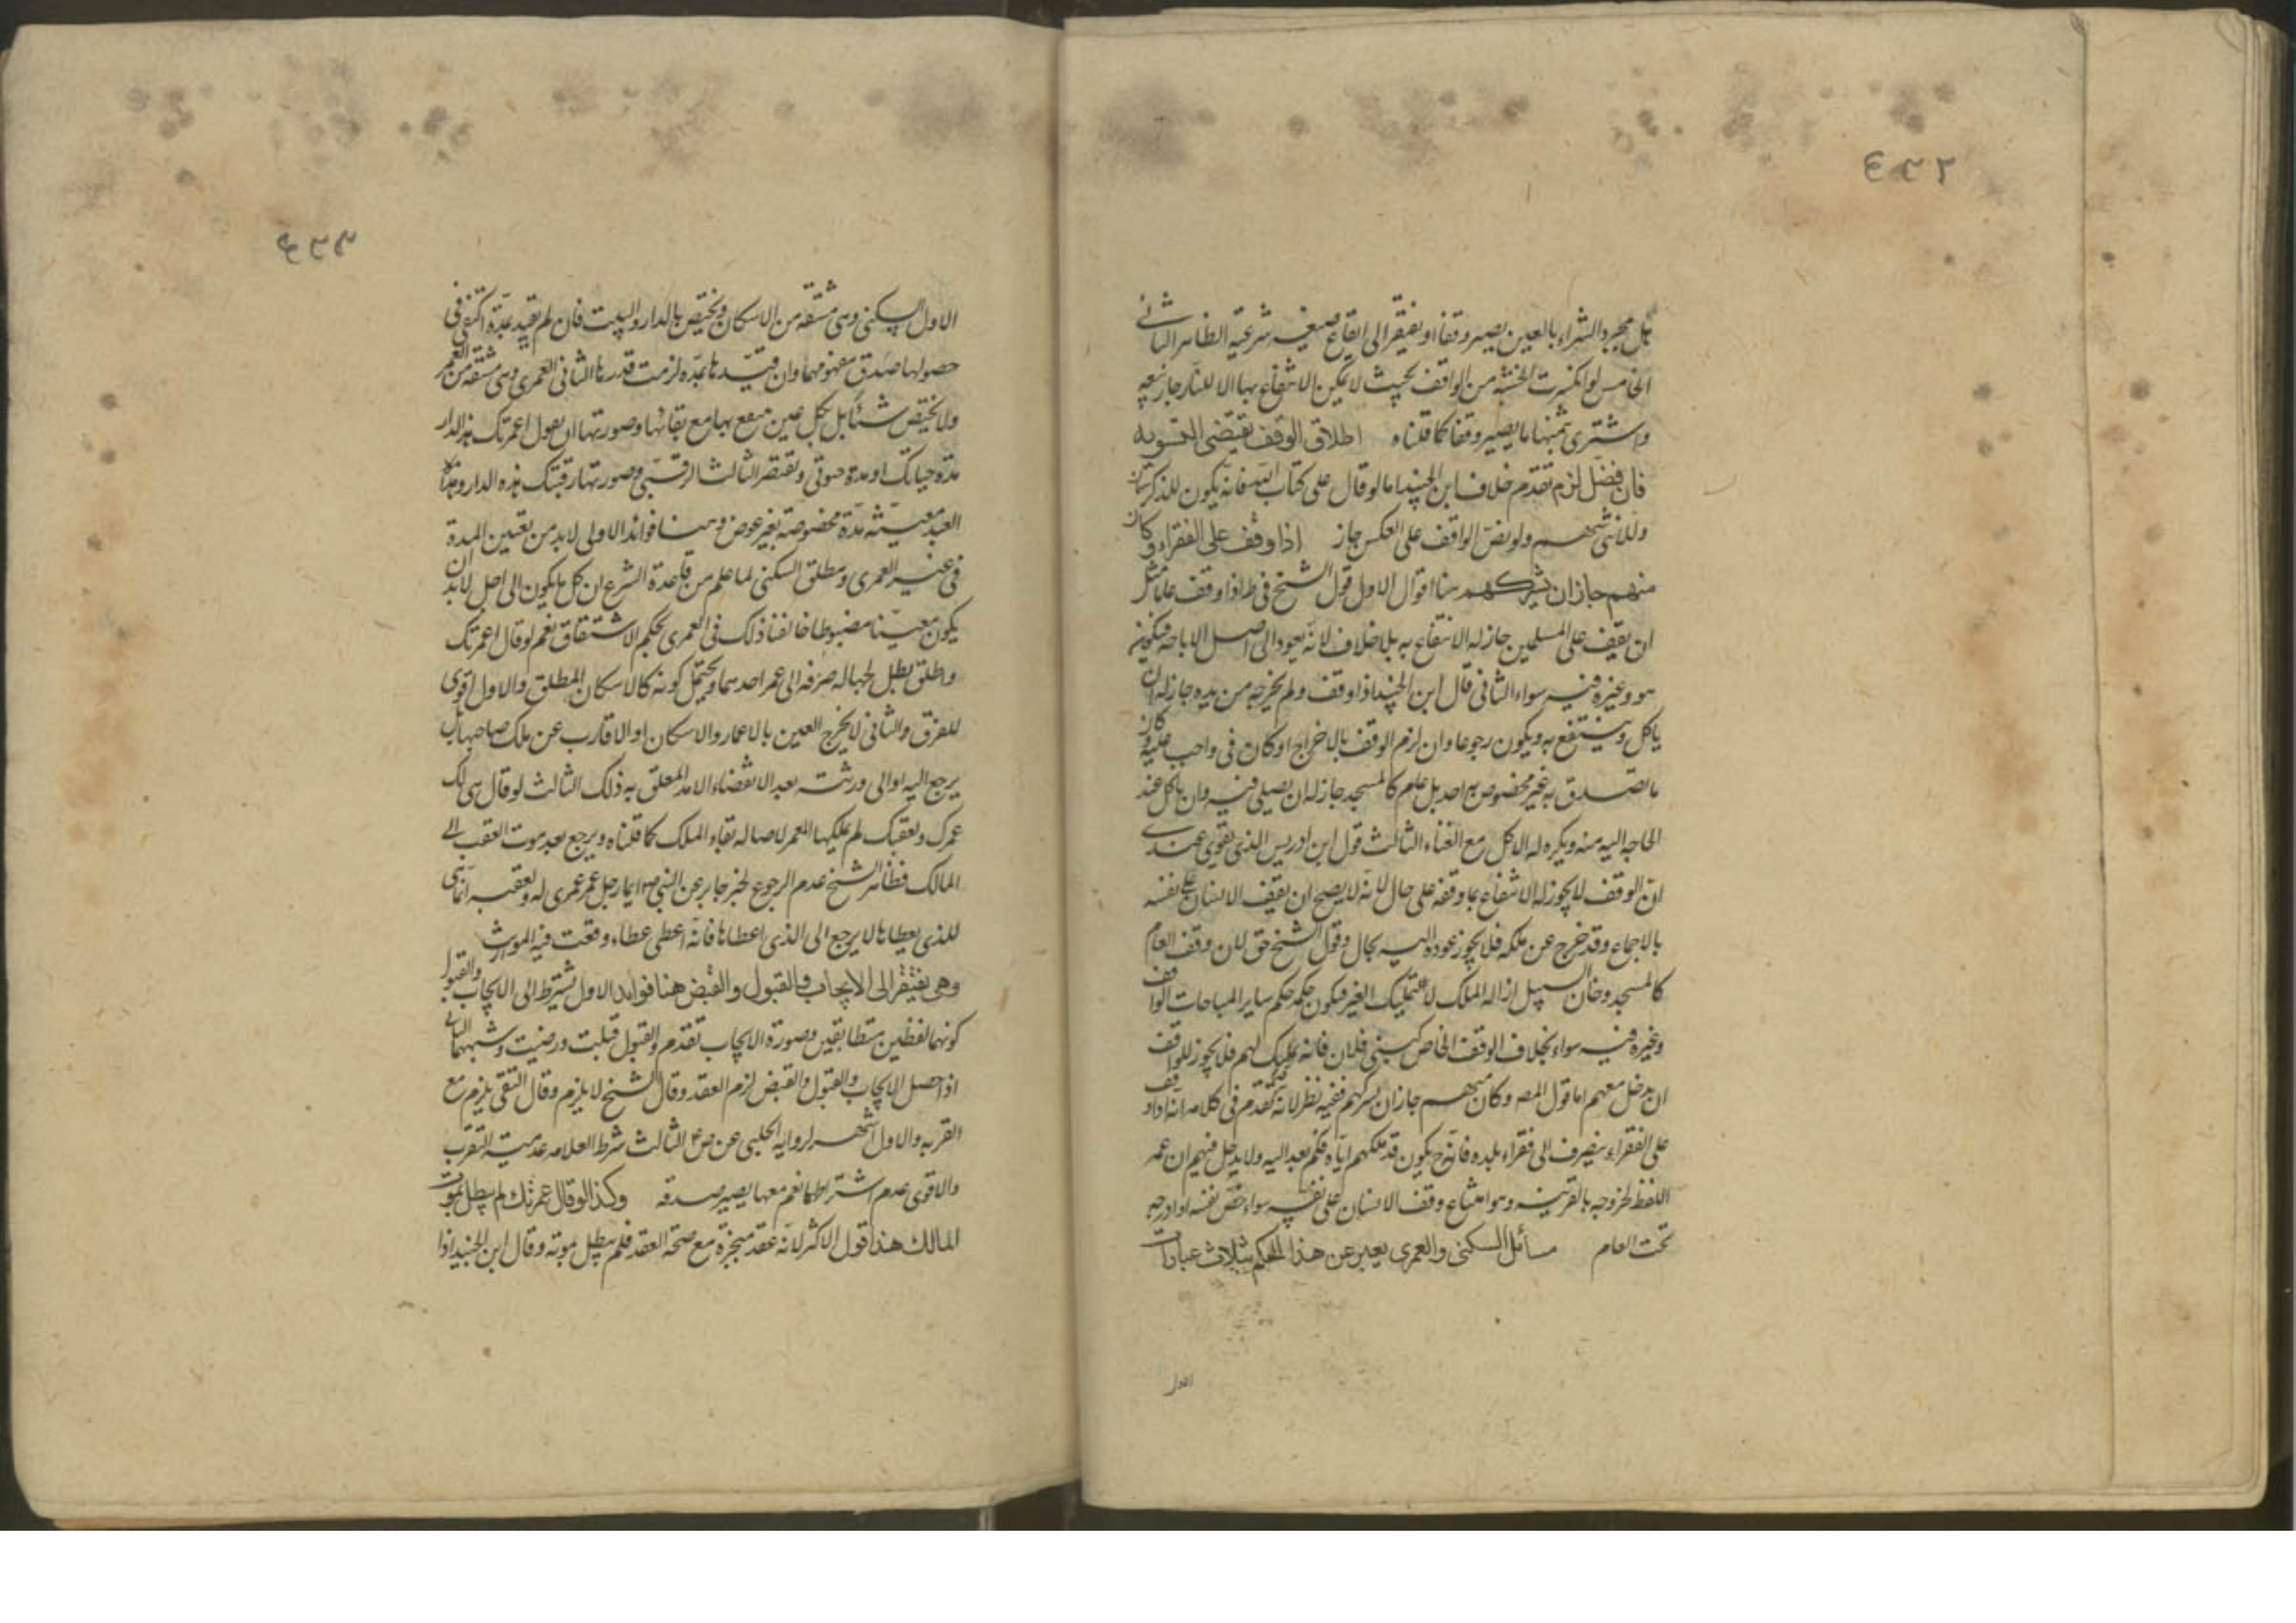 ٤٣٢
بل بمجرد الشراء بالعين يصير وقفا او يفتقر الى ايقاع صيغه شرعية الظاهر الثانى
الخامس لو انكسرت الخشبه من الواقف بحيث لا يمكن الانتفاع بها الا للنار جاز بيعه
واشترى بثمنها ما يصير وقفا كما قلناه اطلاق الوقف يقتضى التسويه
فان فضل لزم تقدم خلاف ابن الجنيد اما لو قال على كتاب الله فانه يكون للذكر سهمان
وللانثى سهم ولو نص الواقف على العكس جاز اذا وقف على الفقراء وكان
منهم جاز ان يشركهم هنا اقوال الاول قول الشيخ فى ط اذا وقف عاما مثل
ان يقف على المسلمين جاز له الانتفاع به بلا خلاف لانه يعود الى اصل الاباحه فيكون
هو وغيره فيه سواء الثانى قال ابن الجنيد اذا وقف ولم يخرجه من يده جاز له ان
ياكل وينتفع به ويكون رجوعا وان لزم الوقف بالاخراج او كان فى واجب عليه وكان
ما تصدق به غير مخصوص به احد بل عام كالمسجد جاز له ان يصلى فيه وان ياكل عند
الحاجه اليه منه ويكره له الاكل مع الغناء الثالث قول ابن ادريس الذى يقوى عندى
ان الوقف لا يجوز له الانتفاع بما وقفه على حال لانه لا يصح ان يقف الانسان على نفسه
بالاجماع وقد خرج عن ملكه فلا يجوز عوده اليه بحال وقول الشيخ حق لان وقف العام
كالمسجد وخان السبيل ازاله الملك لا تمليك الغير فيكون حكمه حكم ساير المباحات الواقف
وغيره فيه سواء بخلاف الوقف الخاص كبنى فلان فانه تمليك لهم فلا يجوز للواقف
ان يدخل معهم اما قول المص وكان منهم جاز ان يشركهم ففيه نظر لانه تقدم فى كلامه انه اذا وقف
على الفقراء ينصرف الى فقراء بلده فانه ح يكون قد ملكهم اياه فلم يعد اليه ولا يدخل فيهم ان عمه
اللفظ لخروجه بالقرينه وهو امتناع وقف الانسان على نفسه سواء خص نفسه او ادرجه
تحت العام مسائل السكنى والعمرى يعبر عن هذا الحكم بثلاث عبارات
الاول
٤٣٣
الاول السكنى وهى مشتقه من الاسكان ويختص بالدار والبيت فان لم يقيد بمدة اكتفى فى
حصولها صدق مفهومها وان قيدها بمده لزمت قدرها الثانى العمرى وهى مشتقه من العمر
ولا يختص شيئا بل بكل عين ينتفع بها مع بقائها وصورتها ان يقول اعمرتك هذه الدار
مدة حياتك او مدة حيوتى وتقتصر الثالث الرقبى وصورتها ارقبتك هذه الدار وهذا
العبد معينة مدة مخصوصة بغير عوض وهنا فوائد الاولى لا بد من تعيين المدة
فى غير العمرى ومطلق السكنى لما علم من قاعدة الشرع ان كل ما يكون الى اجل لا بد ان
يكون معينا مضبوطا خالفنا ذلك فى العمرى بحكم الاشتقاق نعم لو قال اعمرتك
واطلق بطل لجهاله صرفه الى عمر احدهما ويحتمل كونه كالاسكان المطلق والاول اقوى
للفرق والثانى لا يخرج العين بالاعمار والاسكان او الاقارب عن ملك صاحبها بل
يرجع اليه او الى ورثته بعد الانقضاء الامد المعلق به ذلك الثالث لو قال هى لك
عمرك ولعقبك لم يملكها المعمر لاصاله بقاء الملك كما قلناه ويرجع بعد موت العقب الى
المالك فظاهر الشيخ عدم الرجوع لخبر جابر عن النبى ص ايما رجل عمر عمرى له ولعقبه انما هى
للذى يعطاها لا يرجع الى الذى اعطاها فانه اعطى عطاء وقعت فيه الموريث
وهى يفتقر الى الايجاب والقبول والقبض هنا فوايد الاول تشترط الى الايجاب والقبول
كونهما لفظين متطابقين وصورة الايجاب تقدم والقبول قبلت ورضيت وشبههما الثانى
اذا حصل الايجاب والقبول والقبض لزم العقد وقال الشيخ لا يلزم وقال التقى يلزم مع
القربه والاول اشهر لروايه الحلبى عن ص ع الثالث شرط العلامه عدميته التقرب
والاقوى عدم اشتراطها نعم معها يصير صدقه وكذا لو قال عمرتك لم يبطل بموت
المالك هذا قول الاكثر لانه عقد منجزة مع صحة العقد فلم يبطل بموته وقال ابن الجنيد اذا